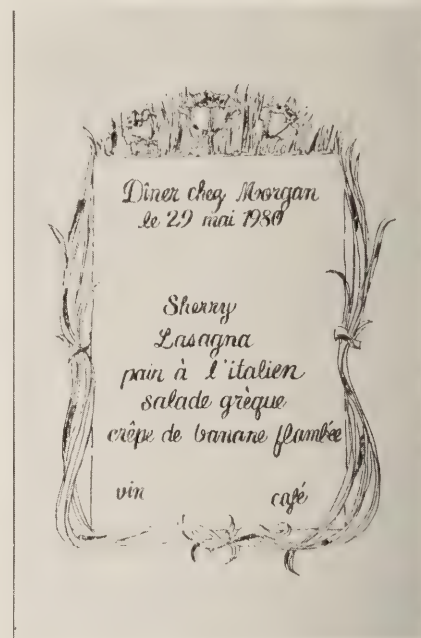 Dîner chez Morgan
le 29 mai 1980
Sherry
Lasagna
pain à l'italien
salade grèque
crêpe de banane flambée
vin café